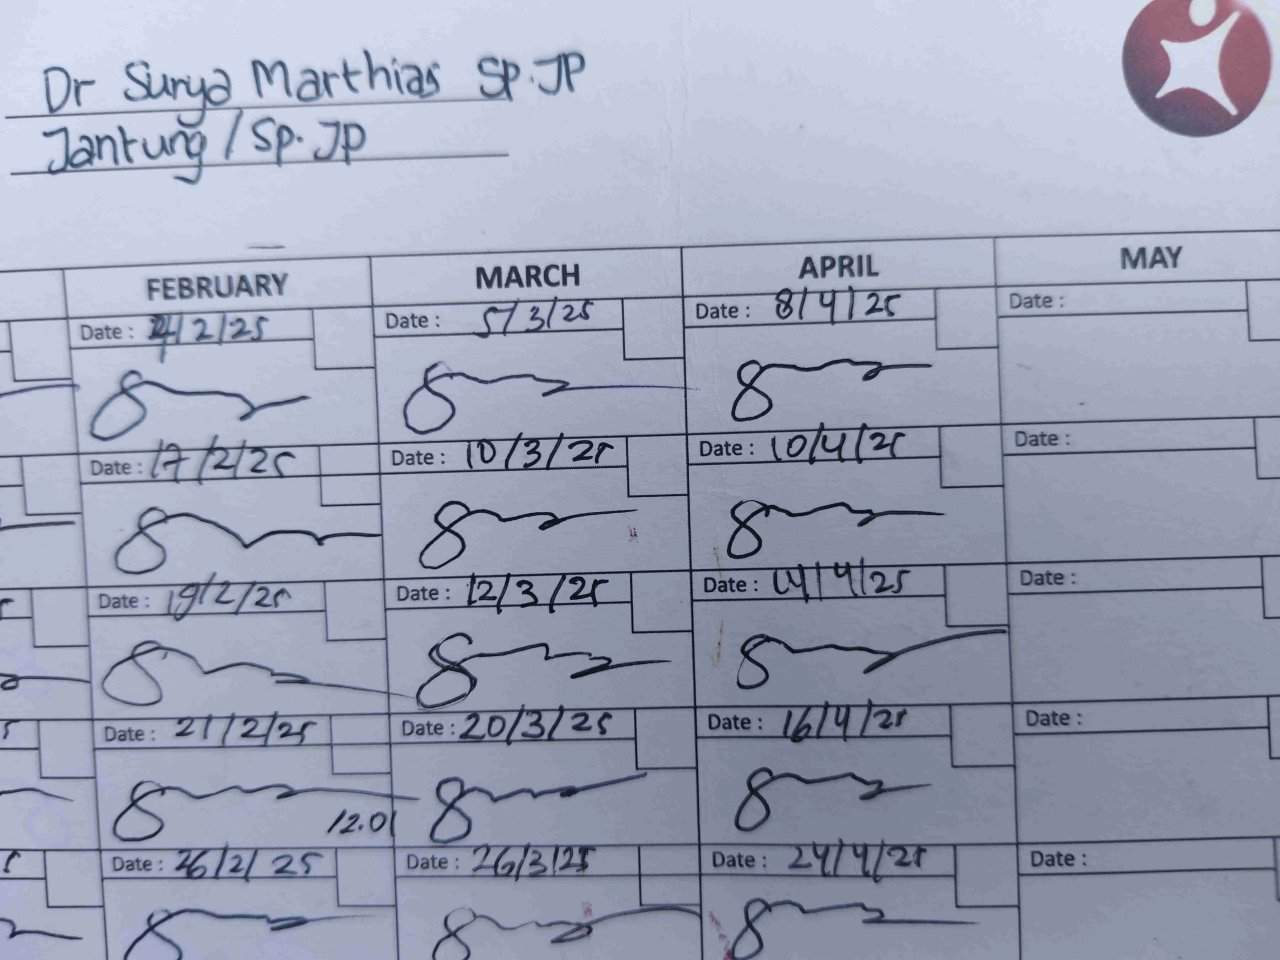 Dr Surya Marthias Sp.JP
Jantung / Sp. JP
FEBRUARY MARCH APRIL MAY
Date : 4/2/25 Date : 5/3/25 Date : 8/4/25 Date :
Date : 17/2/25 Date : 10/3/25 Date : 10/4/25 Date :
Date : 19/2/25 Date : 12/3/25 Date : 14/4/25 Date :
Date : 21/2/25 Date : 20/3/25 Date : 16/4/25 Date :
12.01
Date : 26/2/25 Date : 26/3/25 Date : 24/4/25 Date :